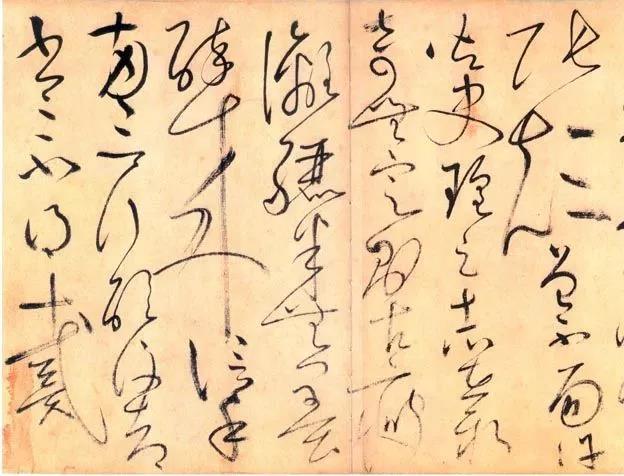 張顛曾不面許
御史瑝云志在新
奇無定則古瘦
灕驪半無墨
醉來信手
兩三行醒後却
書書不得戴